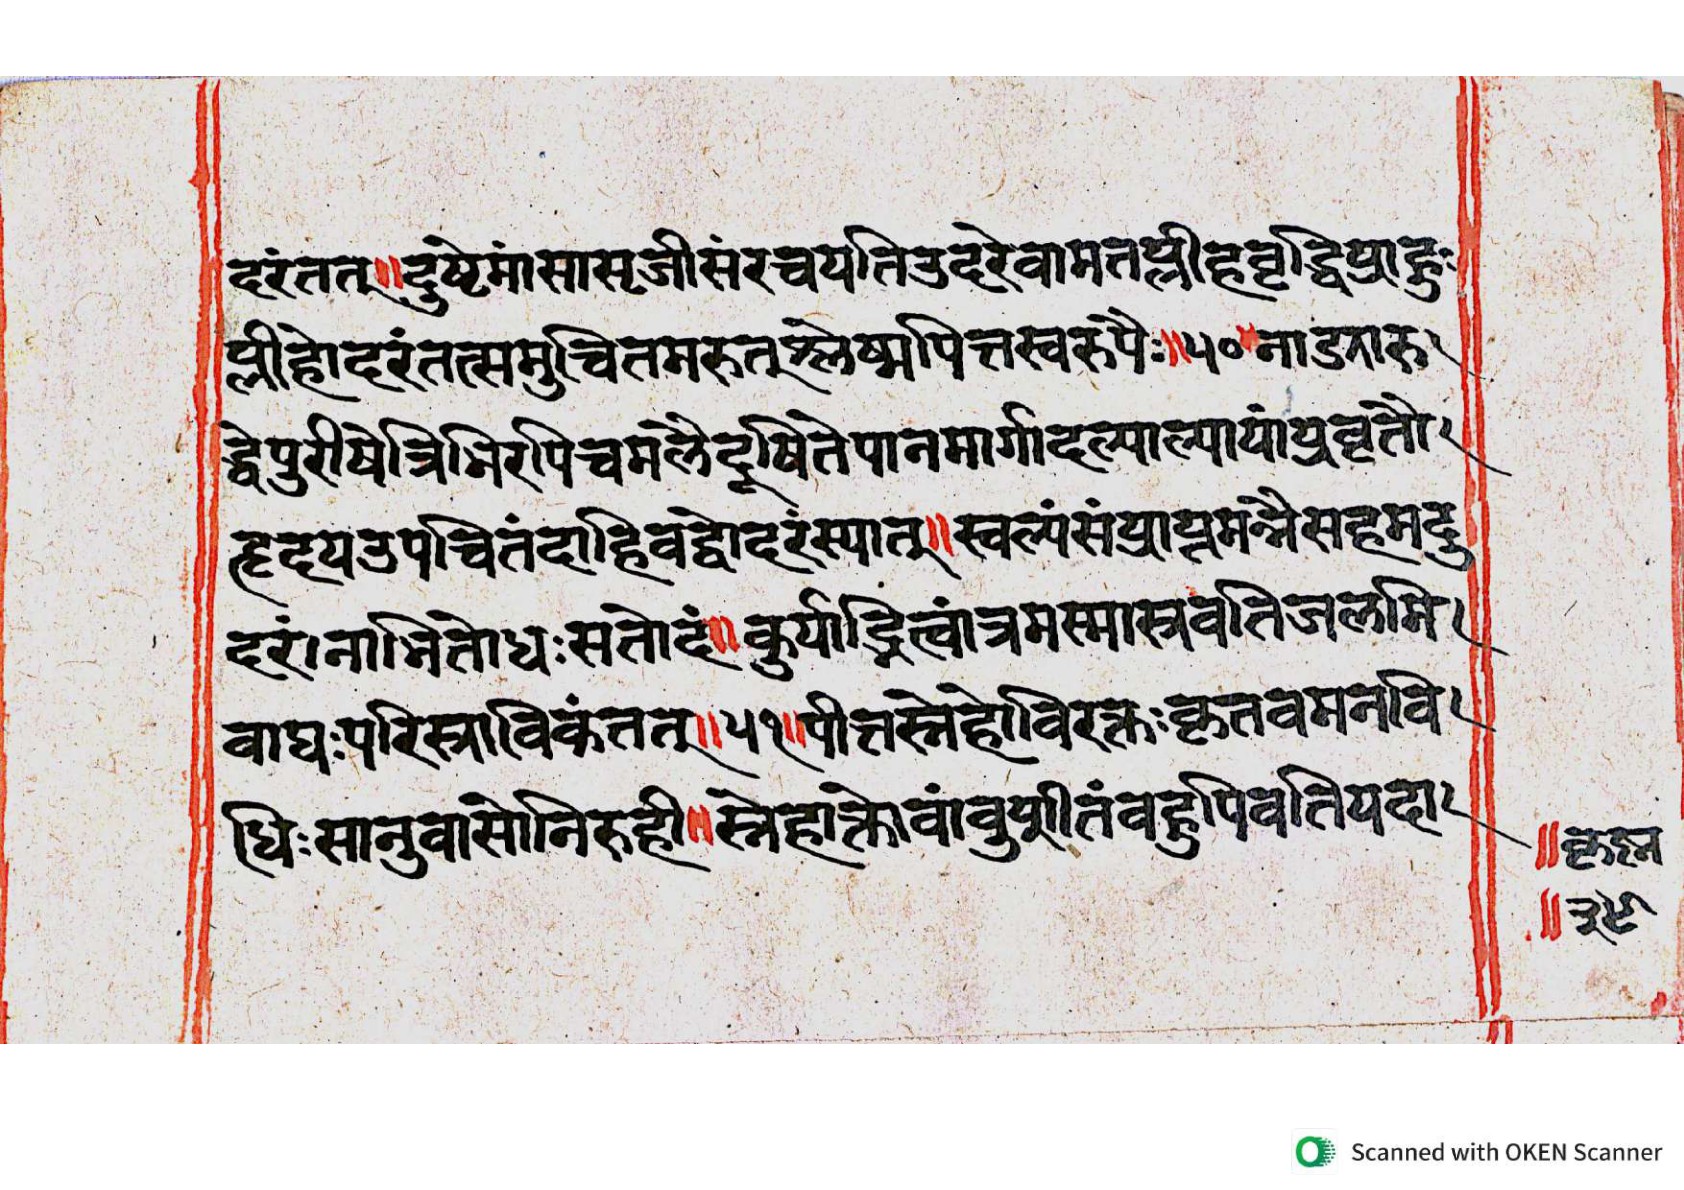 दरंतत्॥दुष्टेमांसासृजीसंरचयतिउदरेवामतप्लीहवृद्धिप्राहुः
प्लीहोदरंतत्समुचितमरुत्श्लेष्मपित्तस्वरुपैः॥५०॥नाड्यारु
द्धेपुरीषेत्रिभिरपिचमलैर्दूषितेपानमार्गादल्पाल्पायांप्रवृतौ
हृदयउपचितंदाहिवद्धोदरंस्यात्॥स्वल्पंसंप्राप्नमन्नैसहमदु
दरं।नाभितोधःसतोदं॥कुर्याद्भित्वांत्रमस्मास्त्रवतिजलमि
वाघःपरिस्त्राविकंतत्॥५१॥पीतस्नेहोविरक्तःकृतवमनवि
धिःसानुवासोनिरुही॥स्नेहाक्तोवांवुशीतंवहुपिवतियदा
॥३९
Scanned with OKEN Scanner